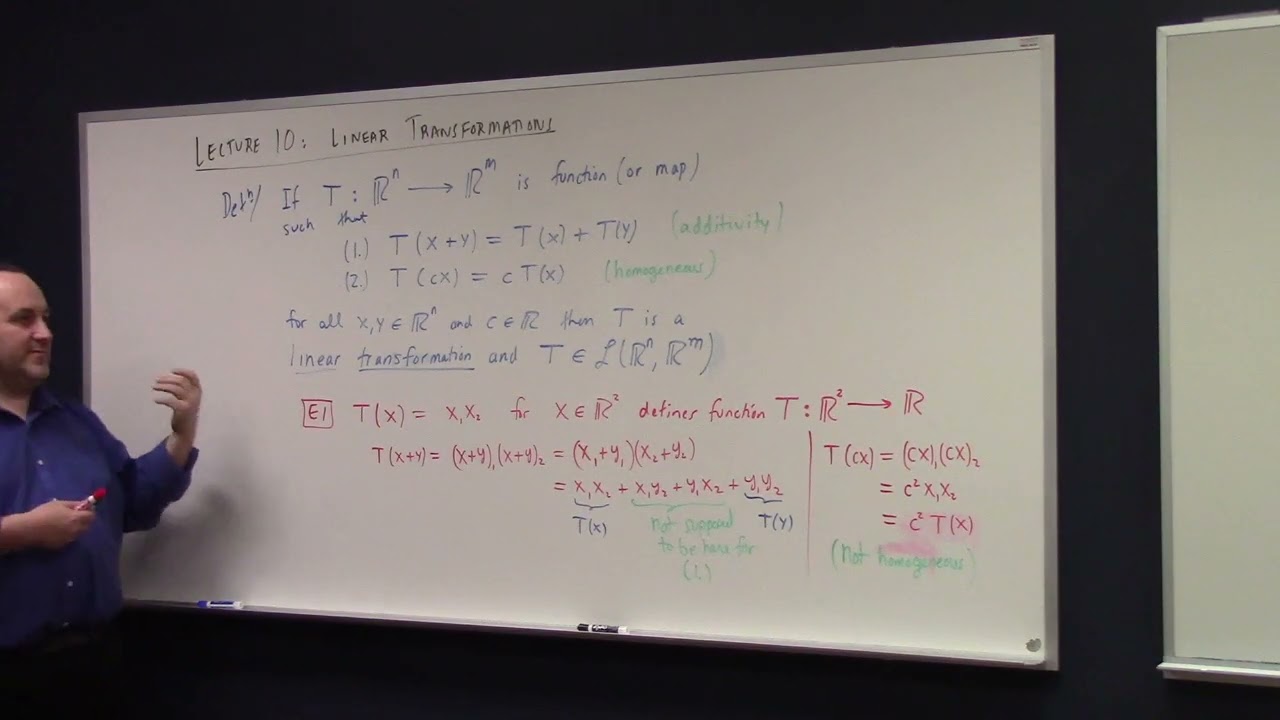 LECTURE 10: LINEAR TRANSFORMATIONS
Defⁿ/ If T : ℝⁿ ⟶ ℝᵐ is function (or map)
such that
(1.) T(x+y) = T(x) + T(y) (additivity)
(2.) T(cx) = c T(x) (homogeneous)
for all x,y ∈ ℝⁿ and c ∈ ℝ then T is a
linear transformation and T ∈ ℒ(ℝⁿ, ℝᵐ)
E1 T(x) = x₁x₂ for x ∈ ℝ² defines function T : ℝ² ⟶ ℝ
T(x+y) = (x+y)₁(x+y)₂ = (x₁+y₁)(x₂+y₂)
= x₁x₂ + x₁y₂ + y₁x₂ + y₁y₂
T(x) not supposed T(y)
to be here for
(1.)
T(cx) = (cx)₁(cx)₂
= c²x₁x₂
= c² T(x)
(not homogeneous)